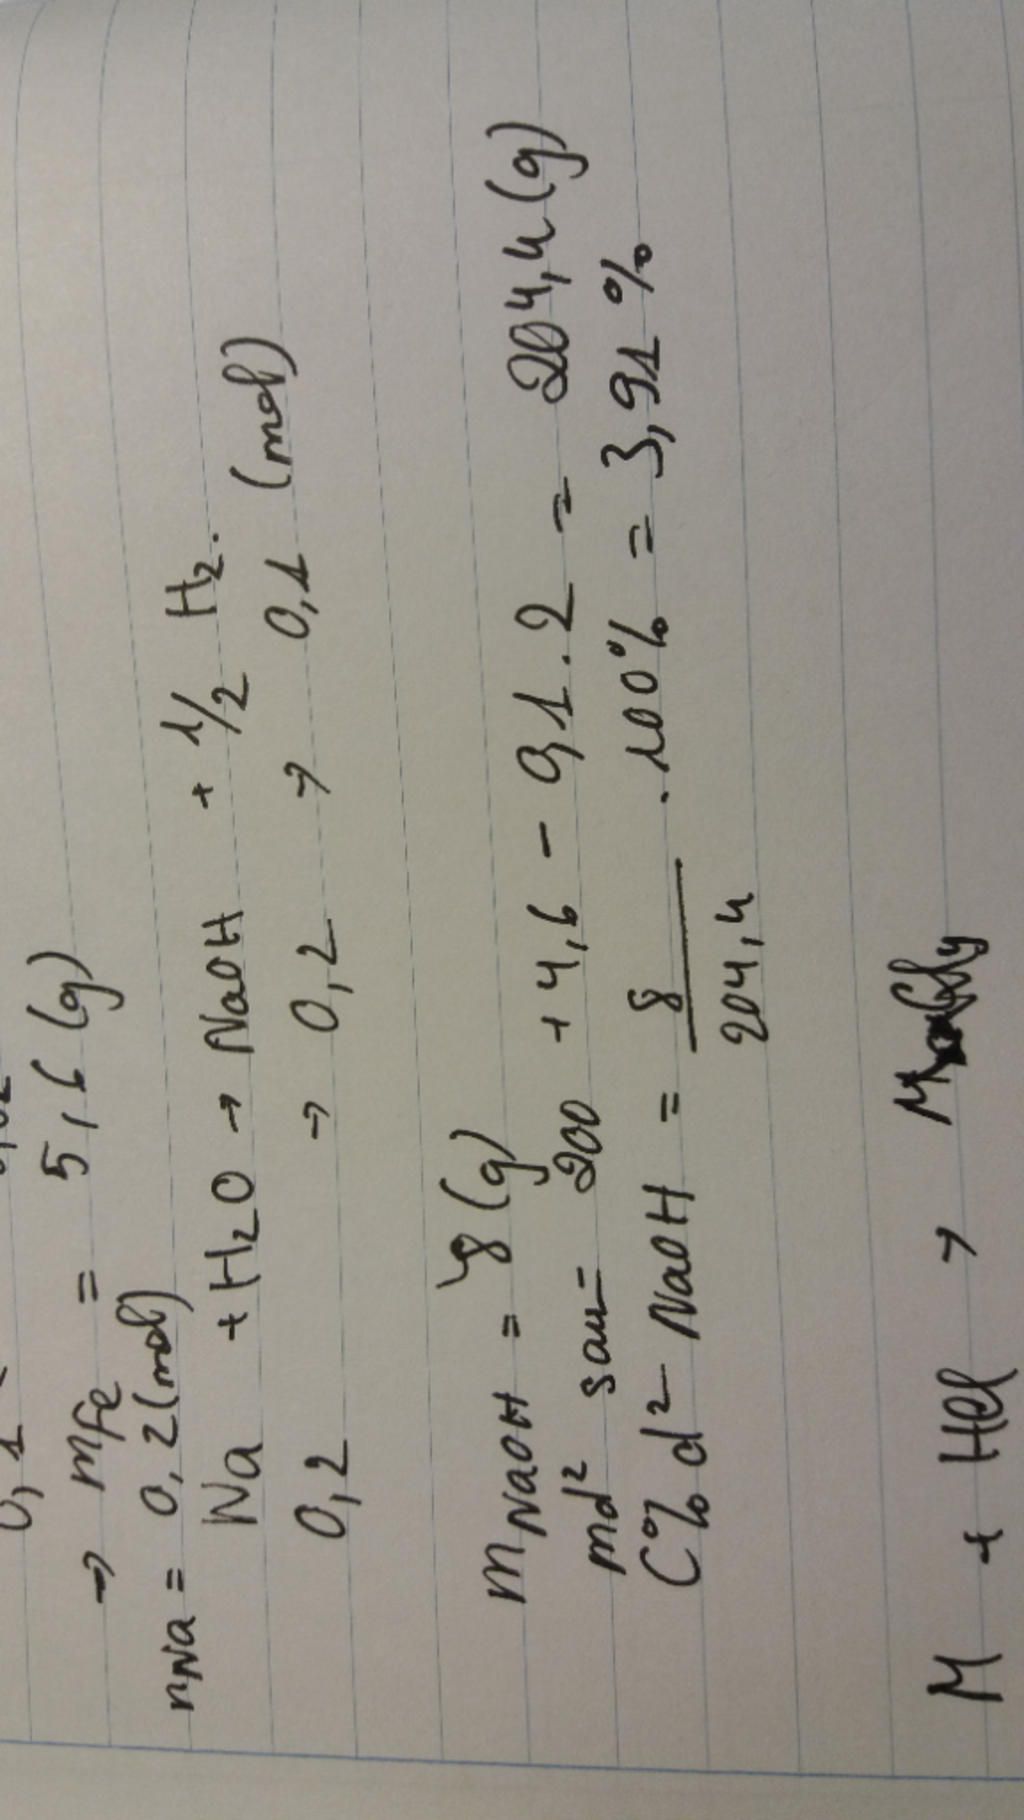 0,1
→ mFe = 5,6 (g)
nNa = 0,2 (mol)
Na + H2O → NaOH + 1/2 H2.
0,2 → 0,2 → 0,1 (mol)
mNaOH = 8 (g)
md2 sau = 200 + 4,6 - 0,1.2 = 204,4 (g)
C% d2 NaOH = 8/204,4 . 100% = 3,91 %
M + HCl →